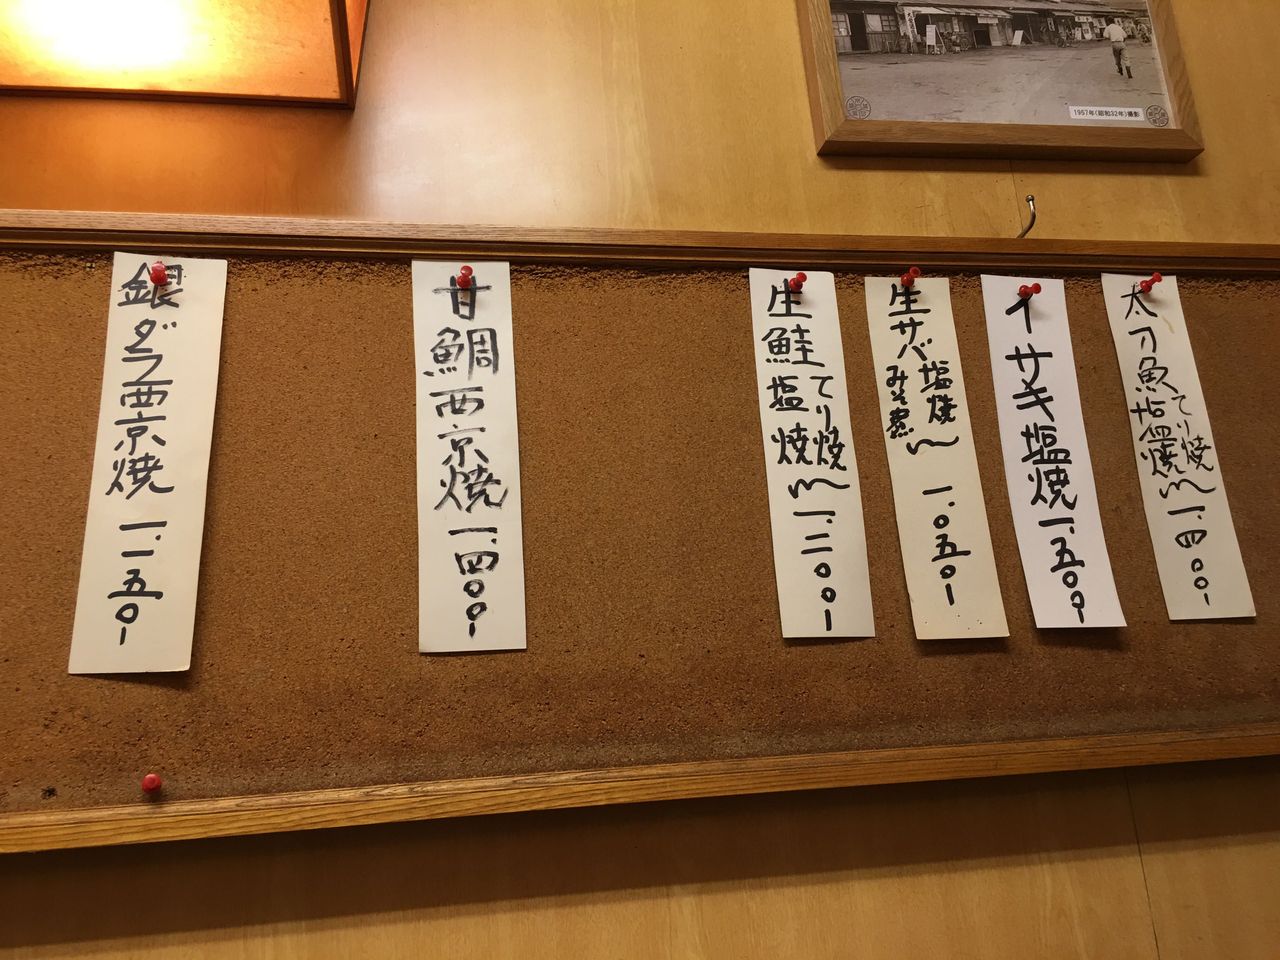 1957年(昭和32年)撮影
太刀魚てり焼塩焼〜一、四〇〇-
イサキ塩焼一、五〇〇-
生サバ塩焼みそ煮〜一、〇五〇-
生鮭てり焼塩焼〜一、二〇〇-
甘鯛西京焼一、四〇〇-
銀ダラ西京焼一、一五〇-